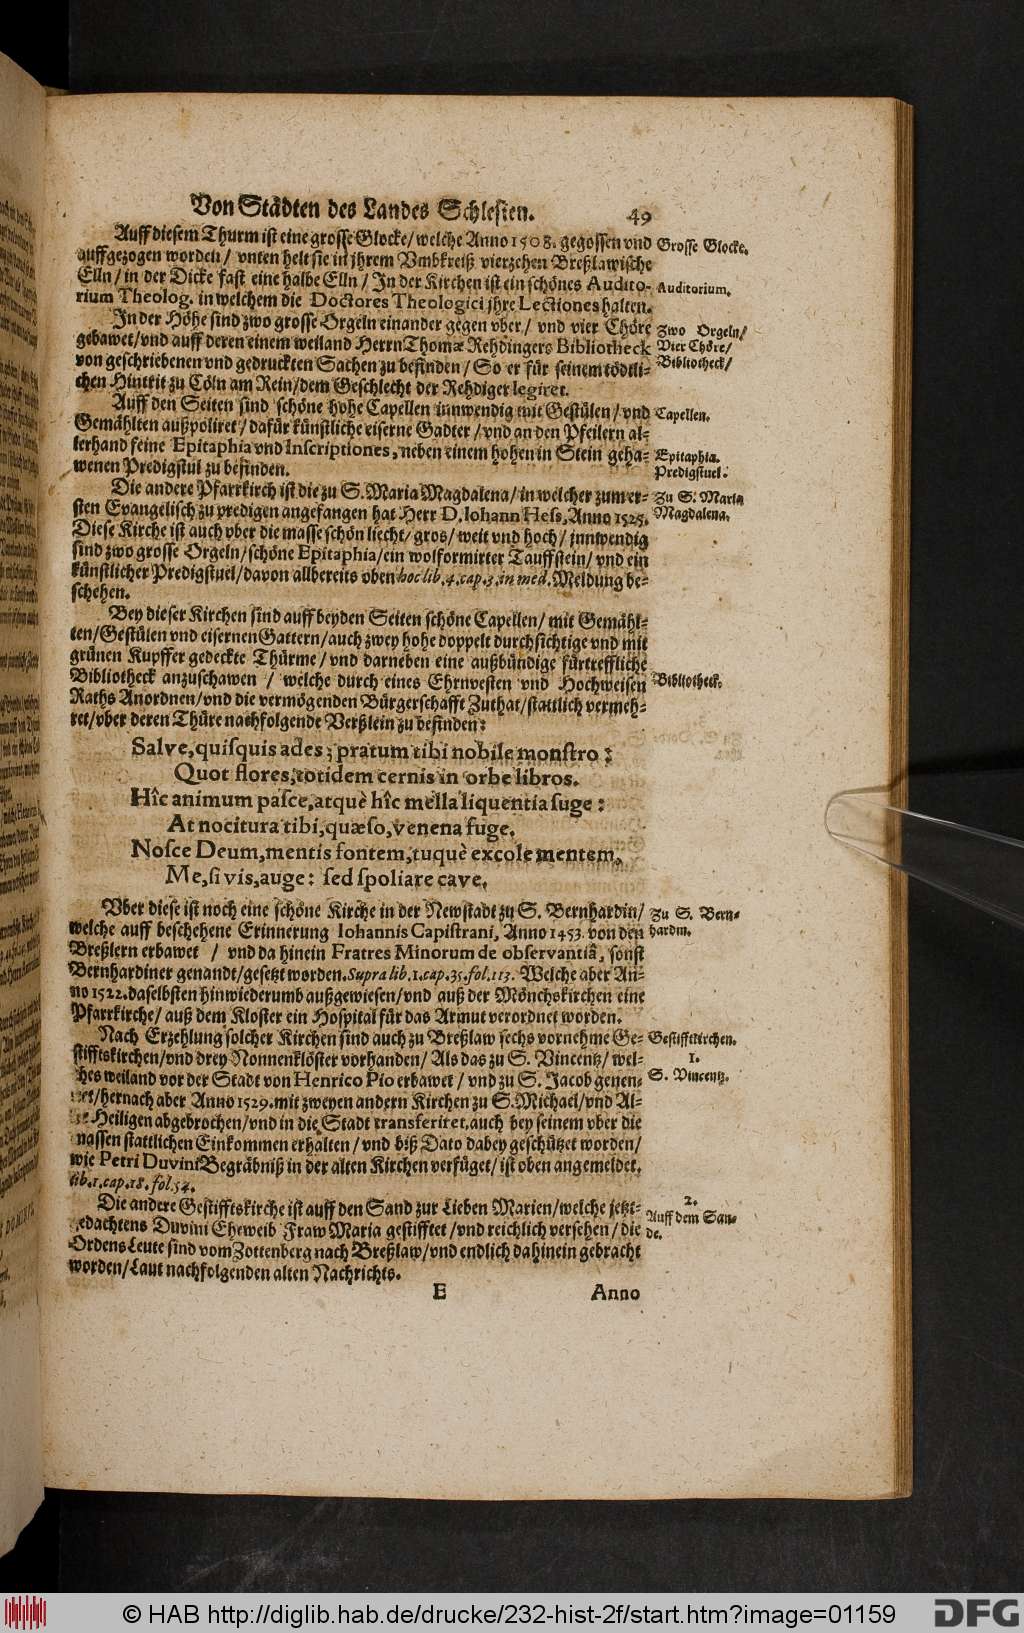 Von Städten des Landes Schlesien. 49
Auff diesem Thurm ist eine grosse Glocke/ welche Anno 1508. gegossen vnd
auffgezogen worden/ vnten helt sie in jhrem Vmbkreiß vierzehen Breßlawische
Elln/ in der Dicke fast eine halbe Elln/ In der Kirchen ist ein schönes Audito-
rium Theolog. in welchem die Doctores Theologici jhre Lectiones halten.
In der Höhe sind zwo grosse Orgeln einander gegen vber/ vnd vier Chöre
gebawet/ vnd auff deren einem weiland Herrn Thomæ Rehdingers Bibliotheck
von geschriebenen vnd gedruckten Sachen zu befinden/ So er für seinem tödtli-
chen Hintrit zu Cöln am Rein/ dem Geschlecht der Rehdiger legiret.
Auff den Seiten sind schöne hohe Capellen innwendig mit Gestülen/ vnd
Gemählten außpoliret/ dafür künstliche eiserne Gadter/ vnd an den Pfeilern al-
lerhand feine Epitaphia vnd Inscriptiones, neben einem hohen in Stein geha-
wenen Predigstul zu befinden.
Die andere Pfarrkirch ist die zu S. Maria Magdalena/ in welcher zum er-
sten Evangelisch zu predigen angefangen hat Herr D. Iohann Hess, Anno 1525.
Diese Kirche ist auch vber die masse schön liecht/ gros/ weit vnd hoch/ innwendig
sind zwo grosse Orgeln/ schöne Epitaphia/ ein wolformirter Tauffstein/ vnd ein
künstlicher Predigstuel/ davon allbereits oben hoc lib. 4. cap. 3. in med. Meldung be-
schehen.
Bey dieser Kirchen sind auff beyden Seiten schöne Capellen/ mit Gemähl-
ten/ Gestülen vnd eisernen Gattern/ auch zwey hohe doppelt durchsichtige vnd mit
grünen Kupffer gedeckte Thürme/ vnd darneben eine außbündige fürtreffliche
Bibliotheck anzuschawen/ welche durch eines Ehrnvesten vnd Hochweisen
Raths Anordnen/ vnd die vermögenden Bürgerschafft Zuthat/ stattlich vermeh-
ret/ vber deren Thüre nachfolgende Verßlein zu befinden:
Salve, quisquis ades; pratum tibi nobile monstro:
Quot flores, totidem cernis in orbe libros.
Hîc animum pasce, atquè hîc mella liquentia suge:
At nocitura tibi, quæso, venena fuge.
Nosce Deum, mentis fontem, tuquè excole mentem,
Me, si vis, auge: sed spoliare cave.
Vber diese ist noch eine schöne Kirche in der Newstadt zu S. Bernhardin/
welche auff beschehene Erinnerung Iohannis Capistrani, Anno 1453. von den
Breßlern erbawet/ vnd da hinein Fratres Minorum de observantiâ, sonst
Bernhardiner genandt/ gesetzt worden. Supra lib. 1. cap. 35. fol. 113. Welche aber An-
no 1522. daselbsten hinwiederumb außgewiesen/ vnd auß der Mönchskirchen eine
Pfarrkirche/ auß dem Kloster ein Hospital für das Armut verordnet worden.
Nach Erzehlung solcher Kirchen sind auch zu Breßlaw sechs vornehme Ge-
stifftskirchen/ vnd drey Nonnenklöster vorhanden/ Als das zu S. Vincentz/ wel-
ches weiland vor der Stadt von Henrico Pio erbawet/ vnd zu S. Jacob genen-
net/ hernach aber Anno 1529. mit zweyen andern Kirchen zu S. Michael/ vnd Al-
ler Heiligen abgebrochen/ vnd in die Stadt transferiret, auch bey seinem vber die
massen stattlichen Einkommen erhalten/ vnd biß Dato dabey geschützet worden/
wie Petri Duvini Begräbniß in der alten Kirchen verfüget/ ist oben angemeldet.
lib. 1. cap. 18. fol. 54.
Die andere Gestifftskirche ist auff den Sand zur Lieben Marien/ welche jetzt-
gedachtens Duvini Eheweib Fraw Maria gestifftet/ vnd reichlich versehen/ die
Ordens Leute sind vom Zottenberg nach Breßlaw/ vnd endlich dahinein gebracht
worden/ Laut nachfolgenden alten Nachrichts.
E Anno
Grosse Glocke.
Auditorium.
Zwo Orgeln/
Vier Chöre/
Bibliotheck/
Capellen.
Epitaphia.
Predigstuel.
Zu S. Maria
Magdalena.
Bibliotheck.
Zu S. Bern-
hardin.
Gestifftkirchen.
1.
S. Vincentz.
2.
Auff dem San-
de.
© HAB http://diglib.hab.de/drucke/232-hist-2f/start.htm?image=01159
DFG